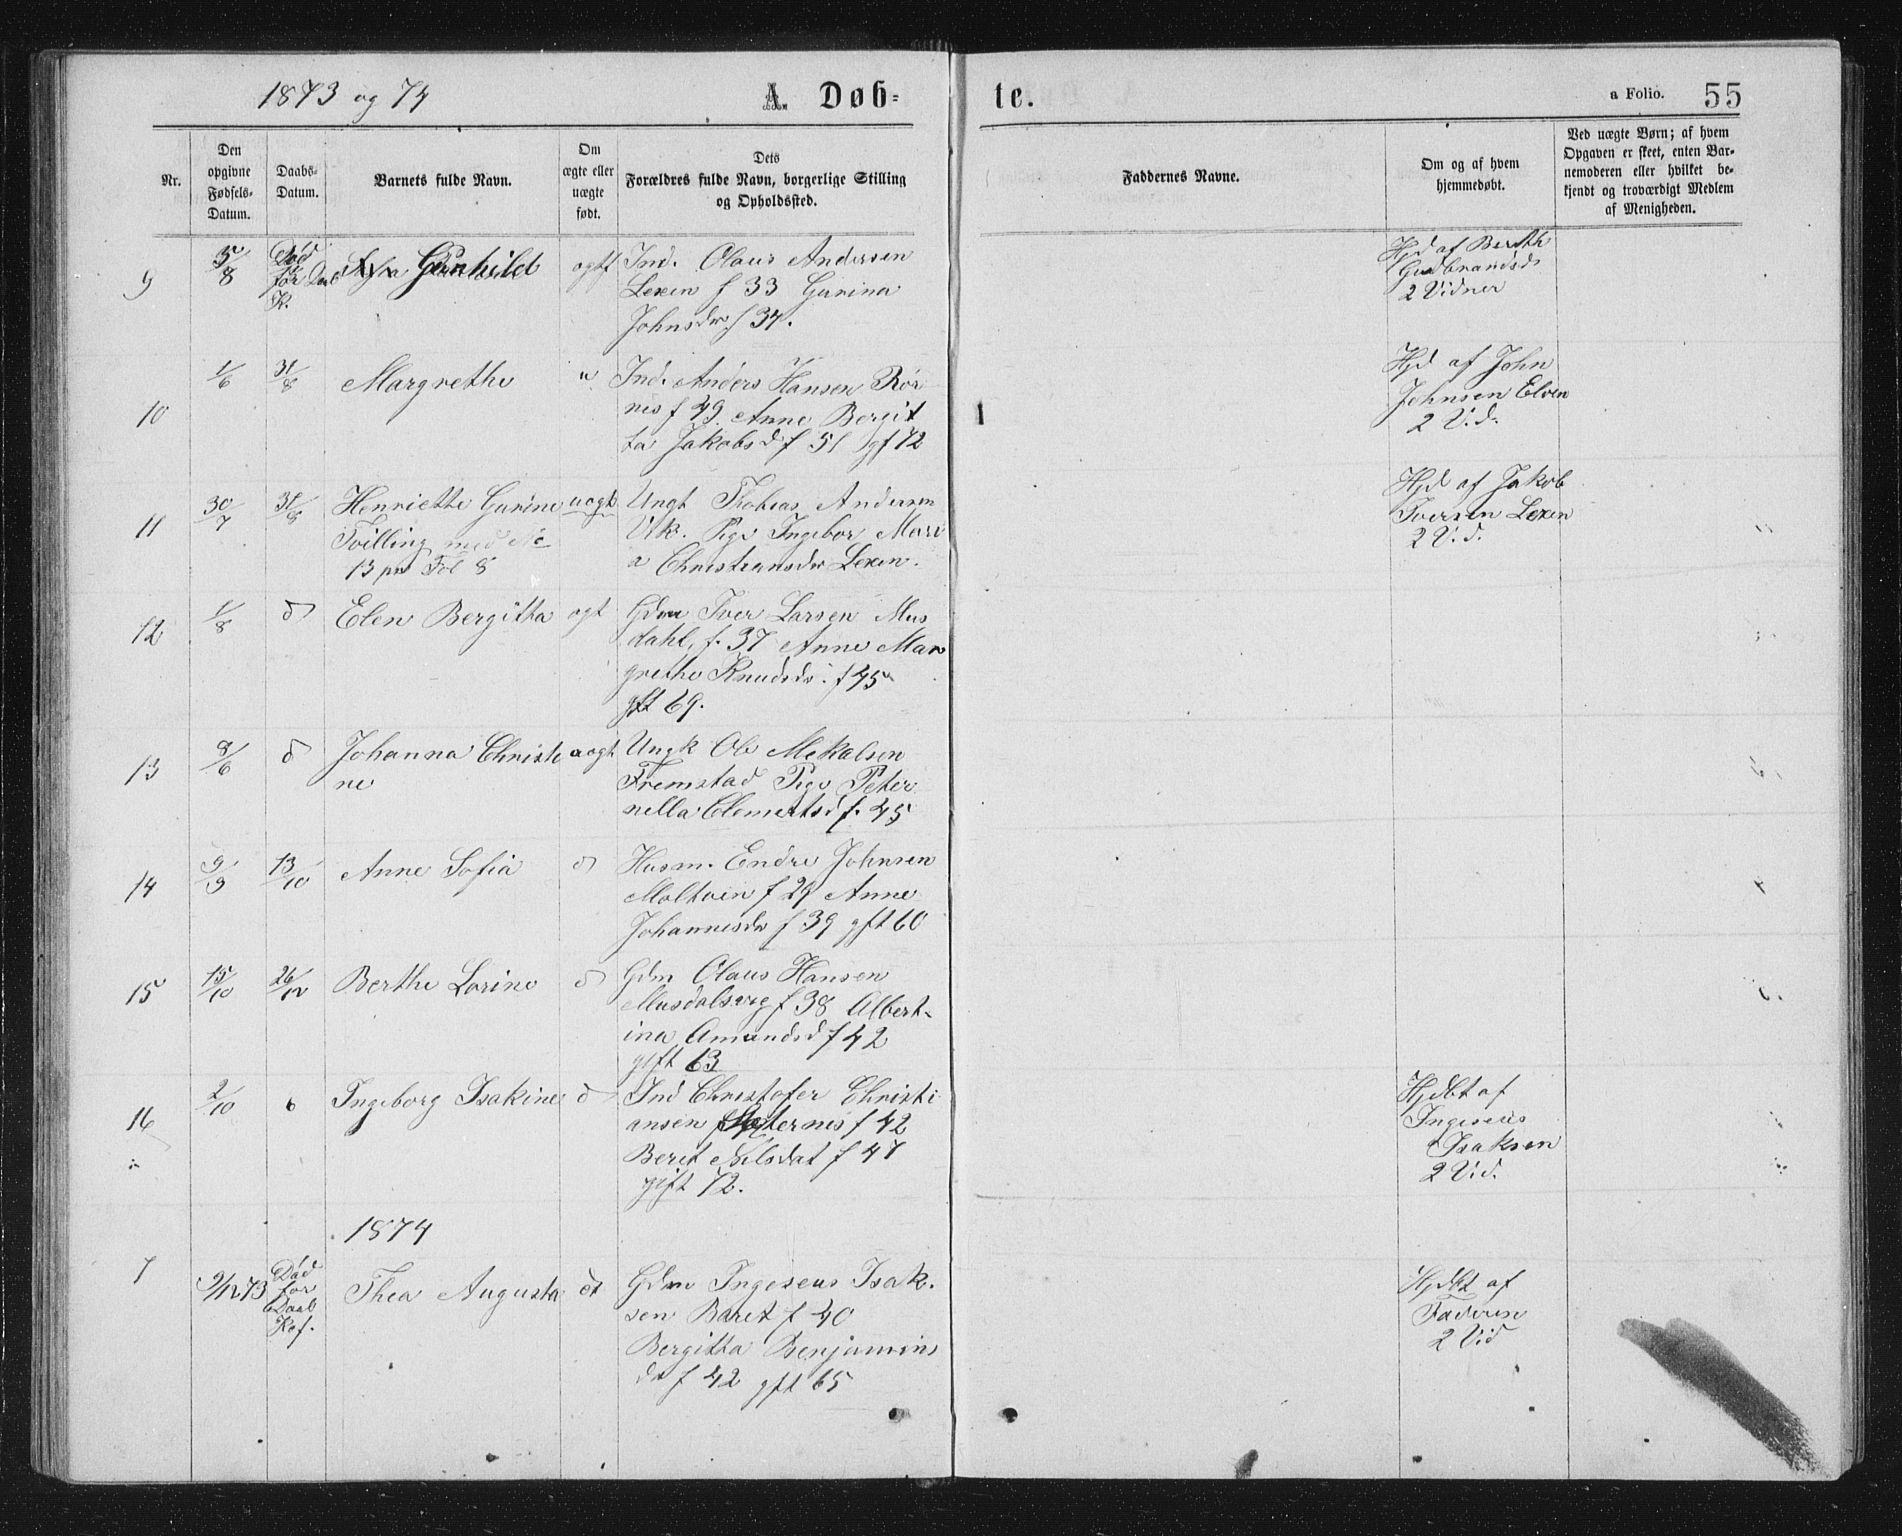 1873 og 74
A. Døb-
te.
a Folio. 55
Nr.
Den opgivne Fødsels-Datum.
Daabs-Datum.
Barnets fulde Navn.
Om ægte eller uægte født.
Dets Forældres fulde Navn, borgerlige Stilling og Opholdssted.
Faddernes Navne.
Om og af hvem hjemmedøbt.
Ved uægte Børn; af hvem Opgaven er skeet, enten Barnemoderen eller hvilket bekjendt og troværdigt Medlem af Menigheden.
9 5/8 Død før Daab K. Gunhild ægtf Ind. Olaus Andersen
Lexen f 33 Gurina
Johnsdr f 34.
Hjd af Berith
Gudbrandsd
2 Vidner
10 1/6 31/8 Margrethe " Ind. Anders Hansen Rör
nes f 49 Anne Bergit
ta Jakobsd f 51 gf 72
Hjd af John
Johnsen Elven
2 Vid.
11 30/7 31/8 Henriette Gurine uægt Ungk Thobias Andersen
Tvilling med No
13 paa Fol 8
Vik. Pige Ingebor Mari
a Christiansdr Lexen.
Hjd af Jakob
Iversen Lexen
2 Vid.
12 1/8 d Elen Bergitta ægt Gdm Iver Larsen Mus
dahl, f. 37 Anne Mar
grethe Knudsdr f 45
gft 69.
13 8/6 d Johanna Christi uægt Ungk Ole Mekalsen
ne
Fremstad Pige Peter
nella Clemetsd f. 45
14 9/9 13/10 Anne Sofia d Husm. Endre Johnsen
Moltuen f 29 Anne
Johannesdr f 39 gft 60
15 15/10 26/12 Berthe Lorine d Gdm Olaus Hansen
Musdalsvig f 38 Albert-
ina Amundsd f 42
gift 63
16 2/10 6 Ingeborg Isakine d Ind Christofer Christi
ansen Sæternes f 42
Beret Nilsdat f 47
gift 72.
Hjdbt af
Ingeseus
Isaksen
2 Vid.
1874
1 9/12 73 Død før Daab Kef. Thea Augusta dt Gdm Ingeseus Isak-
sen Baret f 40
Bergitta Benjamins
dr f 42 gft 65
Hjdbt af
Faderen
2 Vid